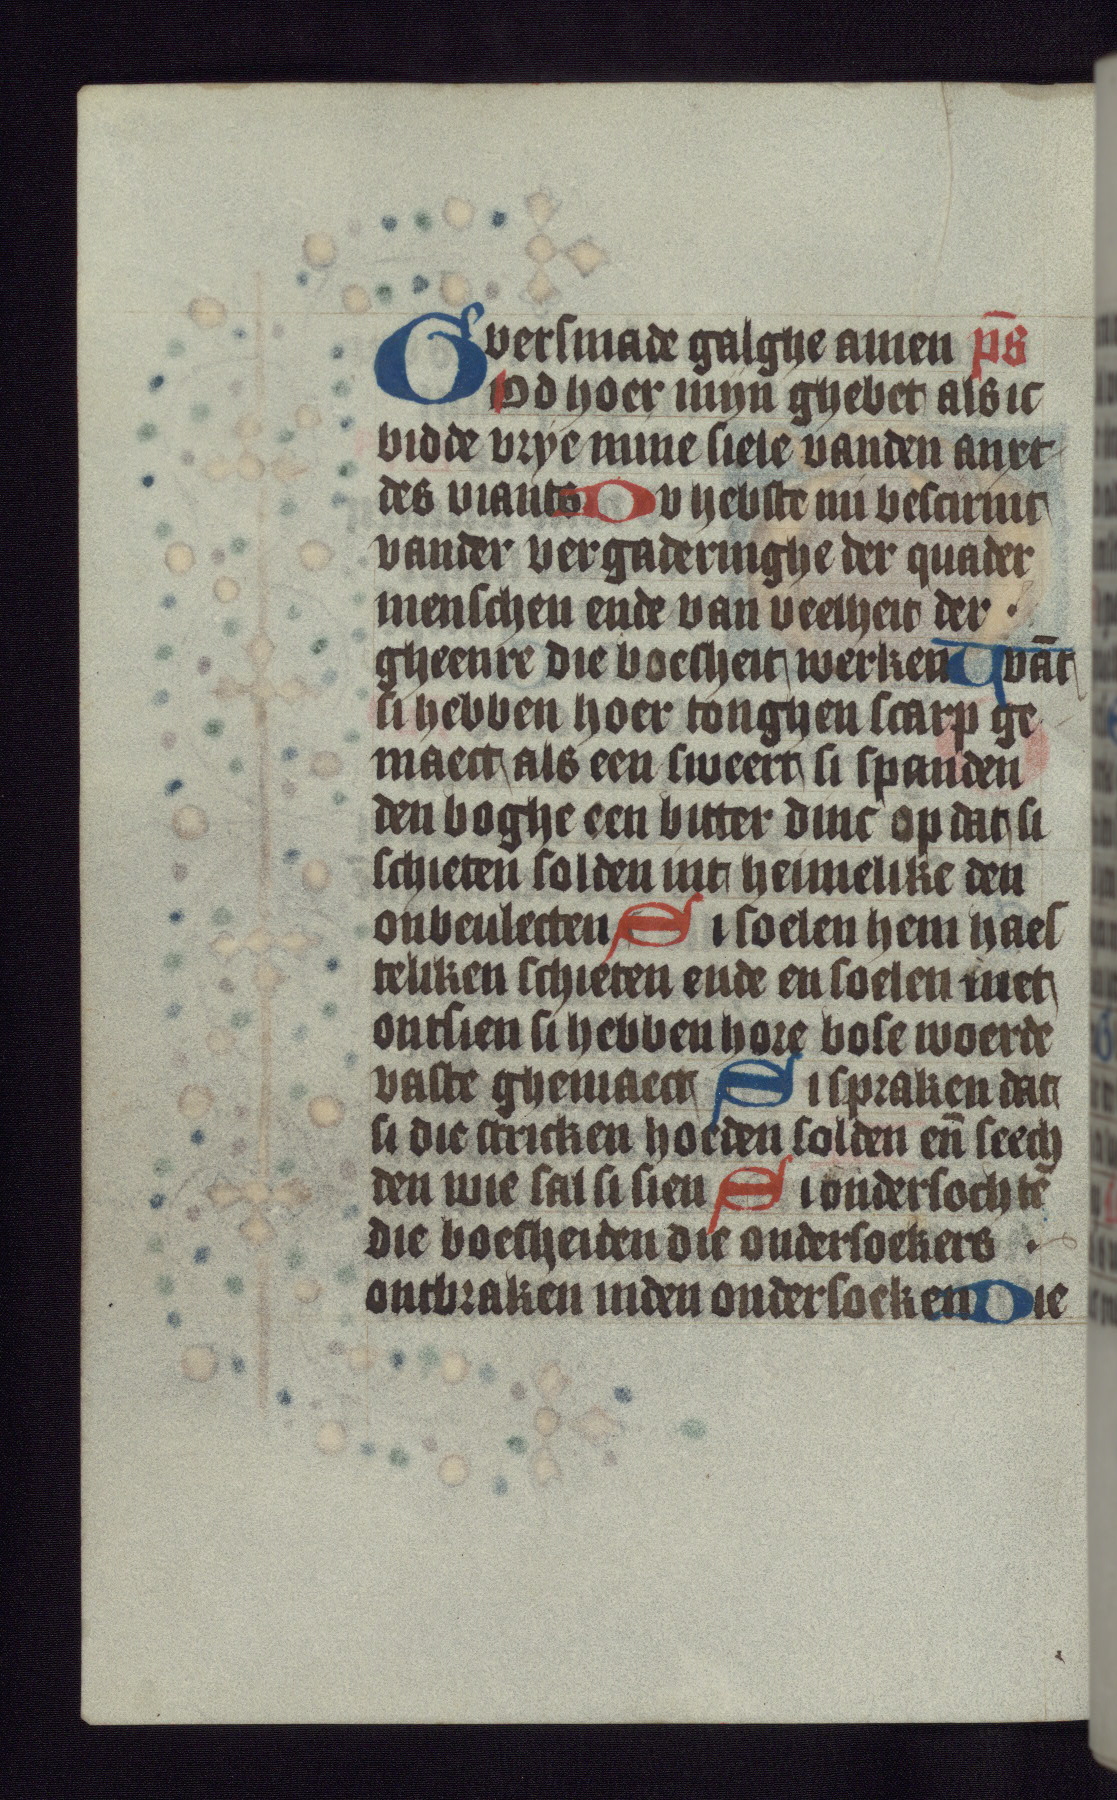 versmade galghe amen p̄s
God hoer mijn ghebet als ic
bidde vrye mine siele vanden anxt
des viants Du hebste mi bescirmt
vander vergaderinghe der quader
menschen ende van veelheit der ·
gheenre die boesheit werken Want
si hebben hoer tonghen scarp ge
maect als een sweert si spanden
den boghe een bitter dinc op dat si
schieten solden int heimelike den
onbeulecten Si soelen hem haes
teliken schieten ende en soelen niet
ontsien si hebben hore bose woerde
vaste ghemaect Si spraken dat
si die stricken hoeden solden en̄ seech
den wie sal si sien Si ondersochtē
die boesheiden die ondersoekers ·
ontbraken inden ondersoeken Die